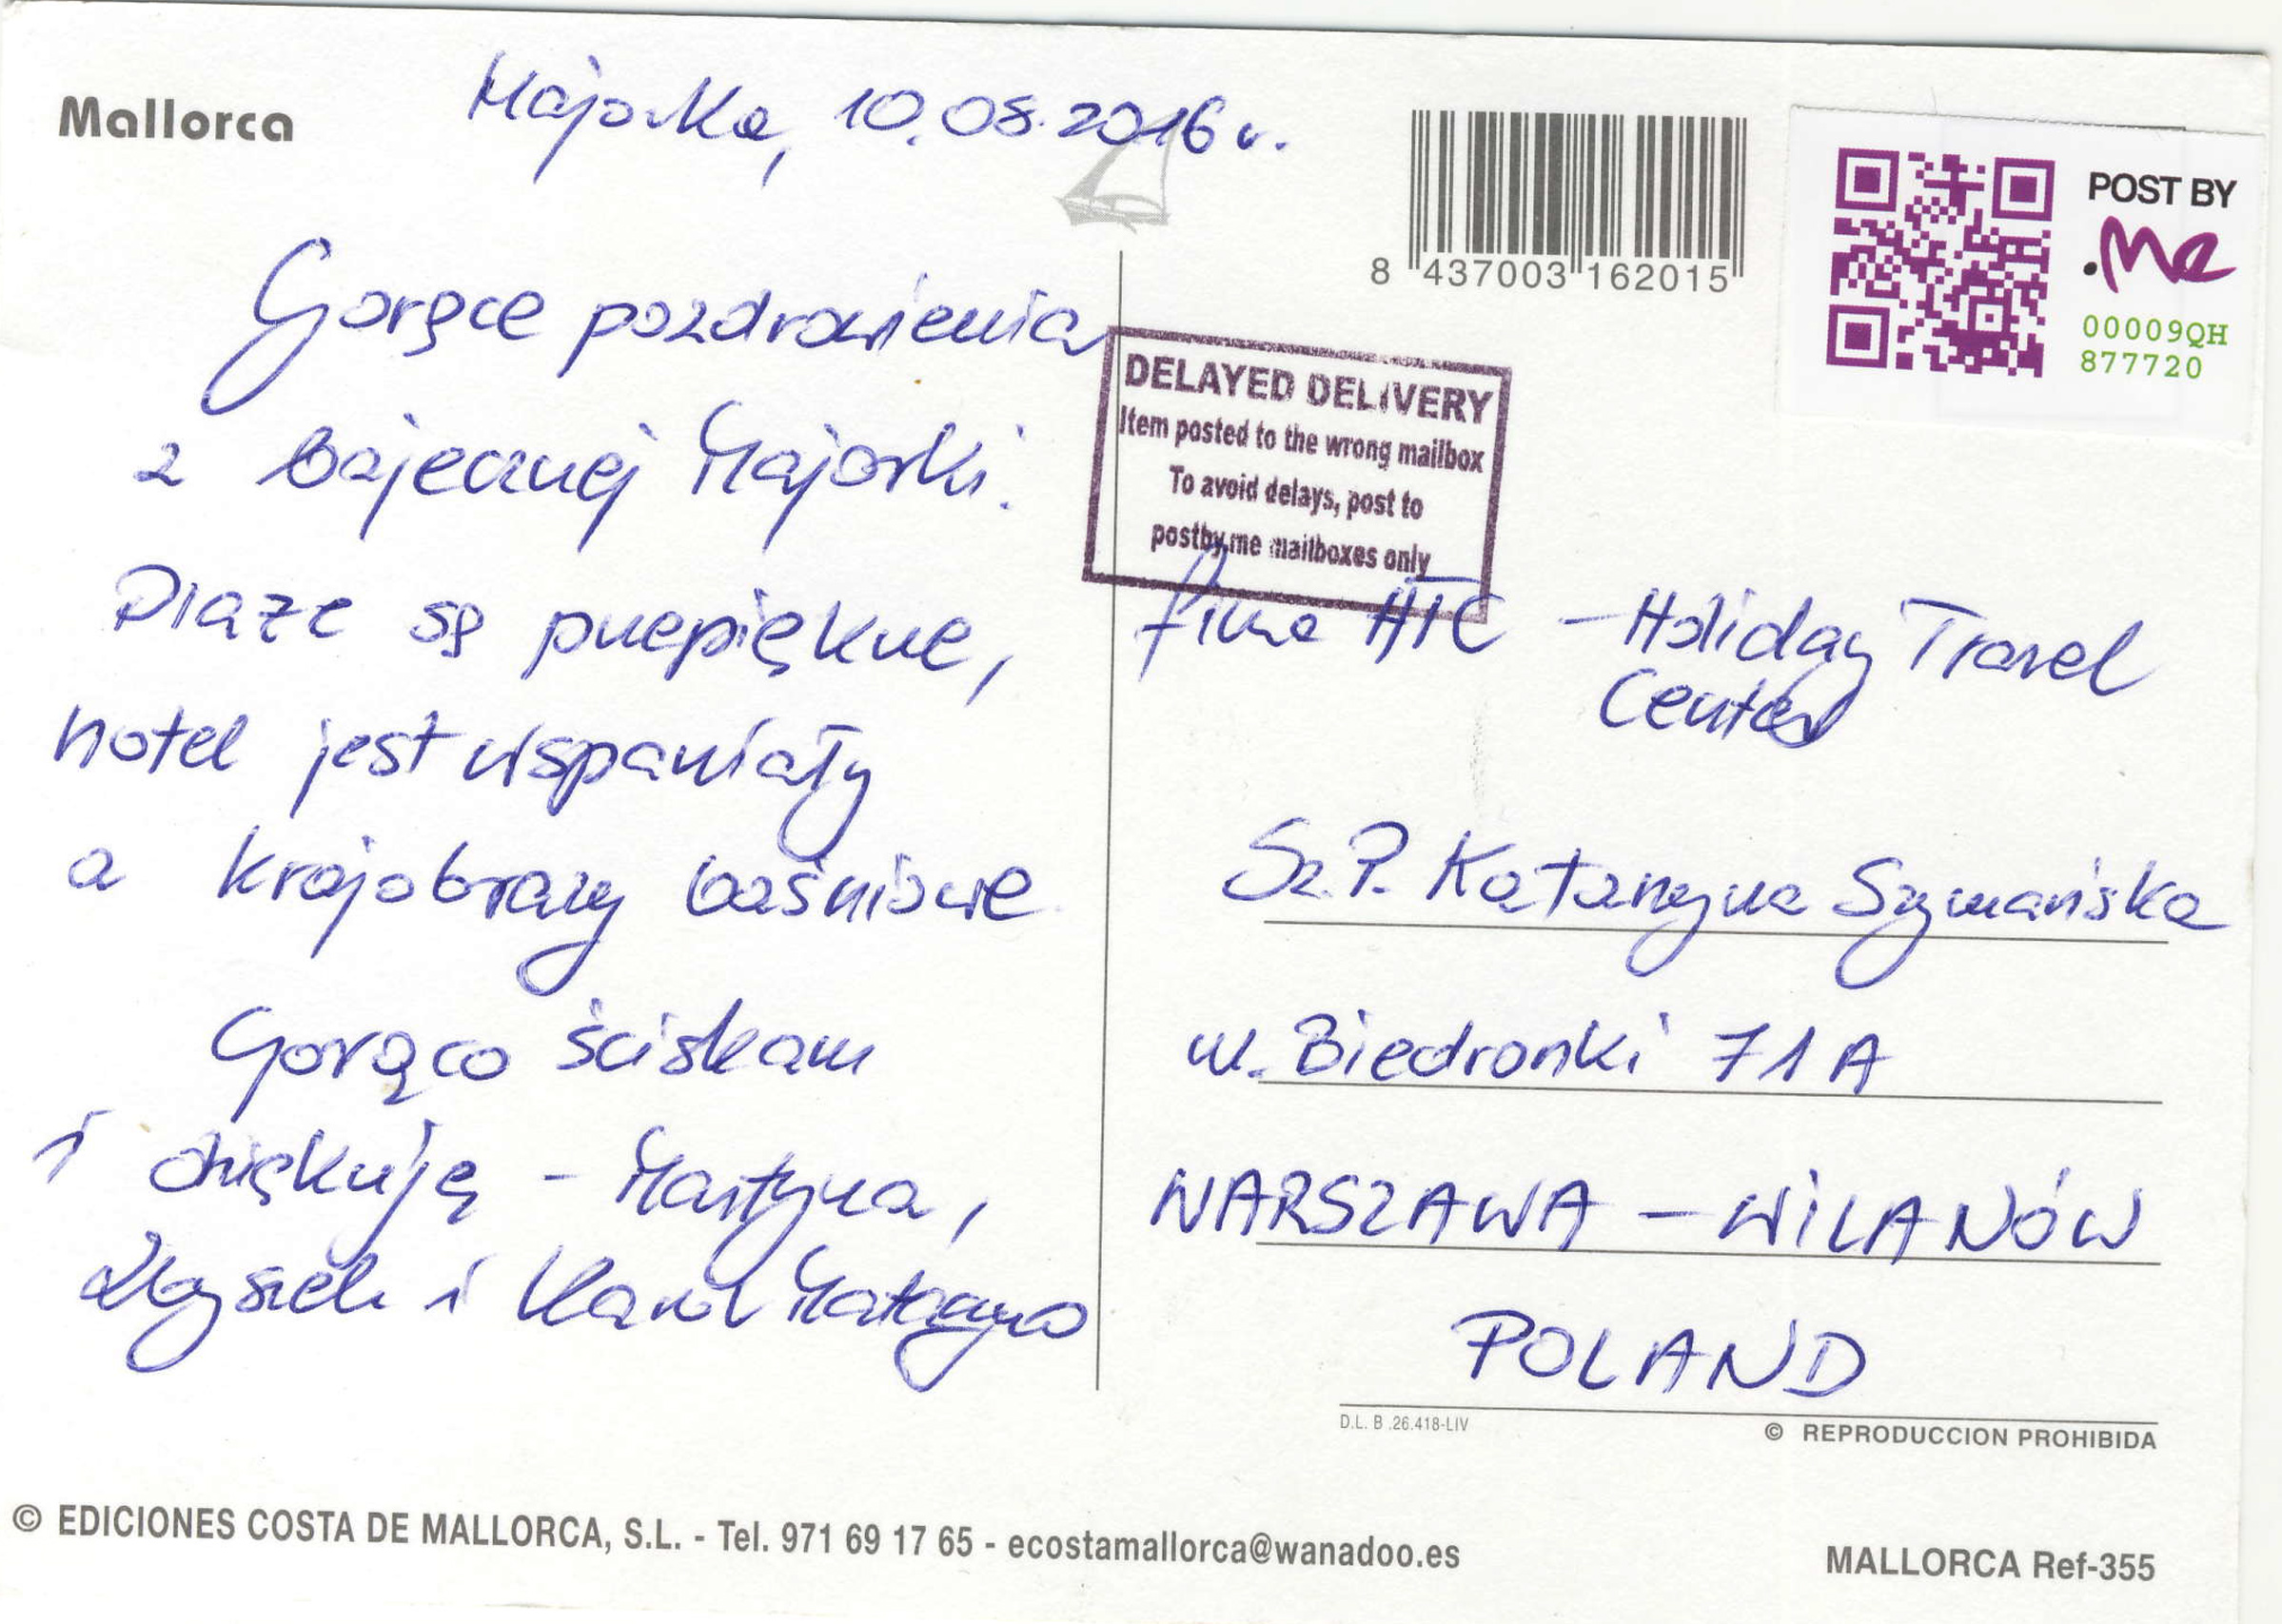 Mallorca
Majorka, 10.08.2016 r.
Gorące pozdrowienia
z bajecznej Majorki.
Plaże są przepiękne,
hotel jest wspaniały
a krajobrazy baśniowe
Gorąco ściskam
i dziękuję - Martyna,
Krzysiek i Karol
8 437003 162015
POST BY
.Me
00009QH
877720
DELAYED DELIVERY
Item posted to the wrong mailbox
To avoid delays, post to
postby.me mailboxes only
firma HTC - Holiday Travel
Center
Sz. P. Katarzyna Szymańska
ul. Biedronki 71A
WARSZAWA - WILANÓW
POLAND
D.L. B .26.418-LIV
© REPRODUCCION PROHIBIDA
© EDICIONES COSTA DE MALLORCA, S.L. - Tel. 971 69 17 65 - ecostamallorca@wanadoo.es
MALLORCA Ref-355